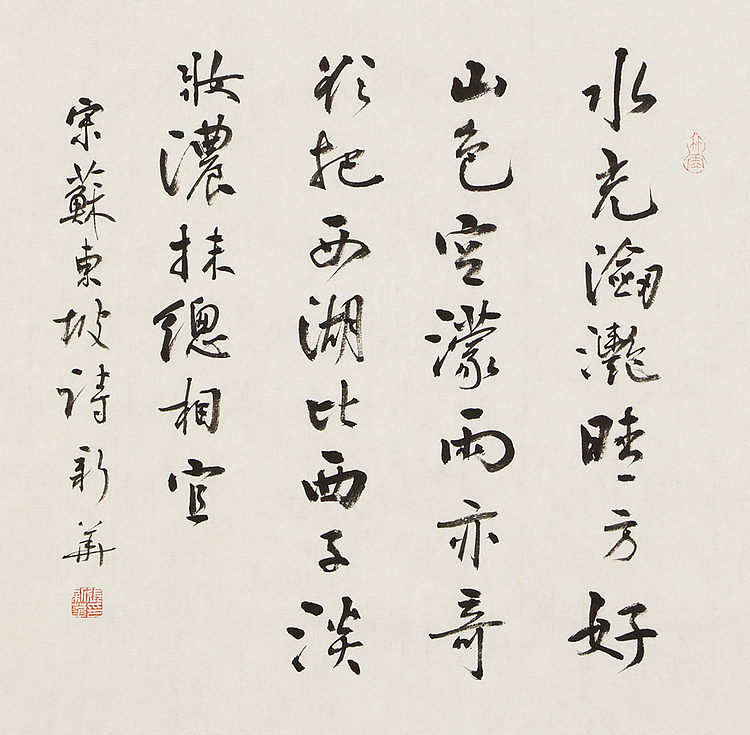 水光瀲灩晴方好
山色空濛雨亦奇
欲把西湖比西子淡
妝濃抹總相宜
宋蘇東坡詩新華